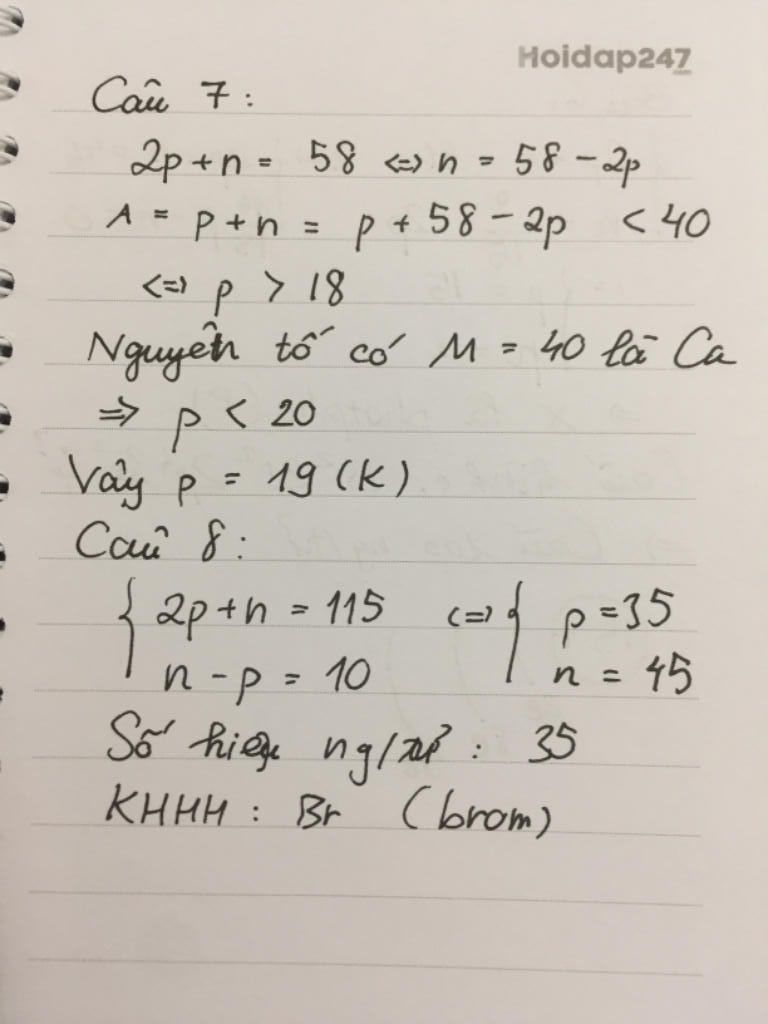 Hoidap247
Câu 7:
2p+n = 58 <=> n = 58 - 2p
A = p+n = p + 58 - 2p < 40
<=> p > 18
Nguyên tố có M = 40 là Ca
=> p < 20
Vậy p = 19 (K)
Câu 8:
{ 2p+n = 115 <=> { p = 35
n - p = 10 n = 45
Số hiệu ng/tử : 35
KHHH : Br (brom)